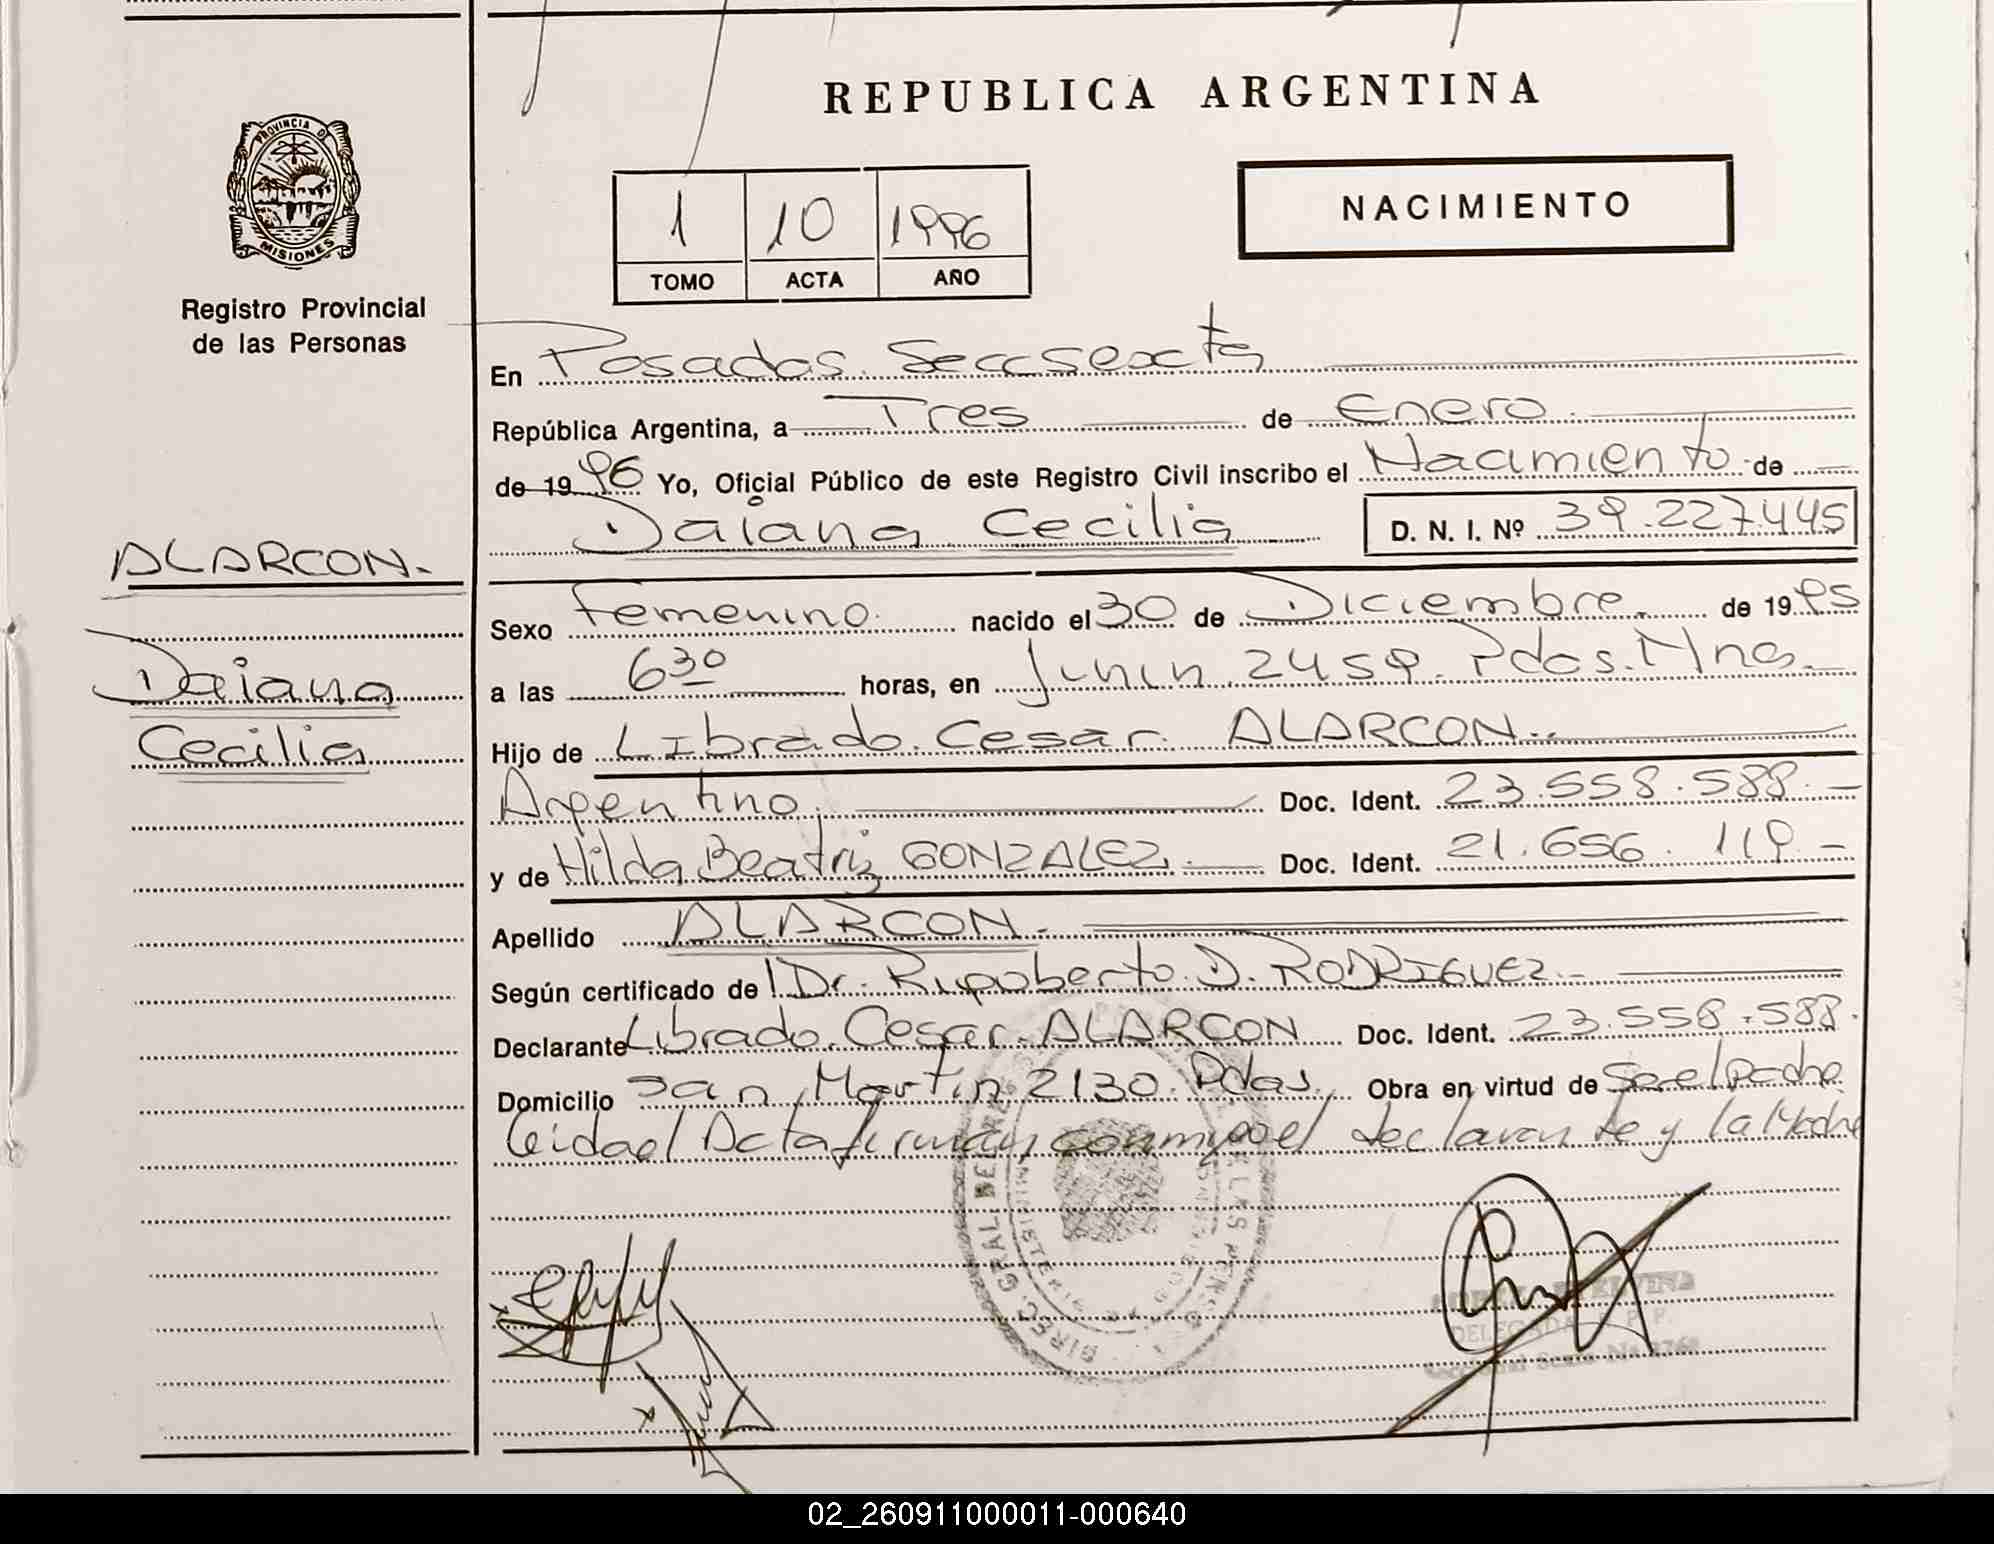 REPUBLICA ARGENTINA
PROVINCIA DE
MISIONES
Registro Provincial
de las Personas
1 10 1996
TOMO ACTA AÑO
NACIMIENTO
En Posadas Secc Sexta
República Argentina, a Tres de Enero
de 1996 Yo, Oficial Público de este Registro Civil inscribo el Nacimiento de
Daiana Cecilia D. N. I. Nº 39.227.445
ALARCON.
Daiana
Cecilia
Sexo Femenino. nacido el 30 de Diciembre. de 1995
a las 6 30 horas, en Junin 2459. Pdas. Mnes.
Hijo de Librado Cesar ALARCON.
Argentino. Doc. Ident. 23.558.588.-
y de Hilda Beatriz GONZALEZ. Doc. Ident. 21.656.119.-
Apellido ALARCON.
Según certificado de Dr. Rigoberto D. RODRIGUEZ.-
Declarante Librado Cesar ALARCON Doc. Ident. 23.558.588.
Domicilio San Martin 2130. Pdas. Obra en virtud de Ser el padre
leida el Acta firman conmigo el declarante y la Madre
DIREC. GRAL. DEL REG.
DE LAS PERSONAS
MINISTERIO DE GOBIERNO
DELEGADA R. P. P.
02_260911000011-000640